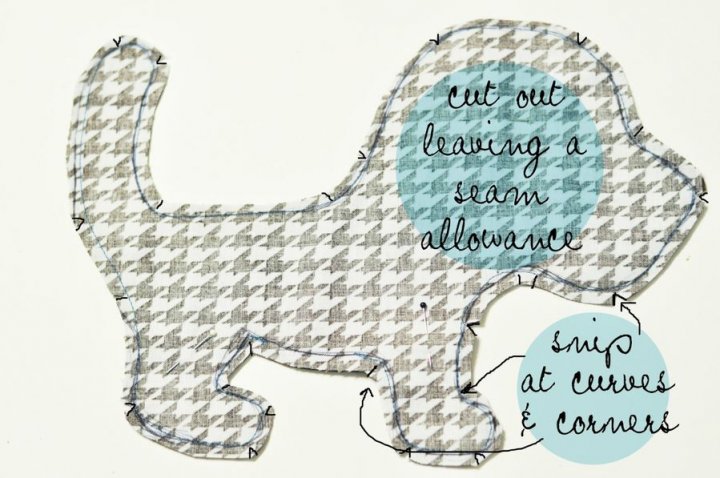 cut out
leaving a
seam
allowance
snip
at curves
& corners